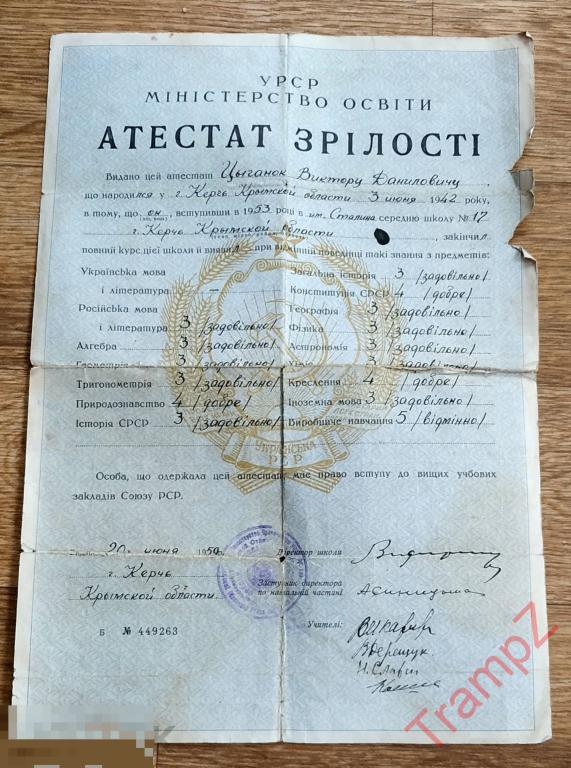 УРСР
МІНІСТЕРСТВО ОСВІТИ
АТЕСТАТ ЗРІЛОСТІ
Видано цей атестат Цыганок Виктору Даниловичу
що народился у г. Керчь Крымской области 3 июня 1942 року,
в тому, що он, вступивши в 1953 році в им. Сталина середню школу № 17
г. Керчь Крымской области, закінчил
повний курс цієї школи й виявил при відмінній поведінці такі знання з предметів:
Українська мова
і література —
Російська мова
і література 3 /задовільно/
Алгебра 3 /задовільно/
Геометрія 3 /задовільно/
Тригонометрія 3 /задовільно/
Природознавство 4 /добре/
Історія СРСР 3 /задовільно/
Загальна історія 3 /задовільно/
Конституція СРСР 4 /добре/
Географія 3 /задовільно/
Фізика 3 /задовільно/
Астрономія 3 /задовільно/
Хімія /задовільно/
Креслення 4 /добре/
Іноземна мова 3 /задовільно/
Виробниче навчання 5 /відмінно/
УКРАЇНСЬКА
РСР
Особа, що одержала цей атестат, має право вступу до вищих учбових
закладів Союзу РСР.
20 июня 1959
г. Керчь
Крымской области
Б № 449263
Директор школи
Заступник директора
по навчальній частині
Учителі:
TrampZ